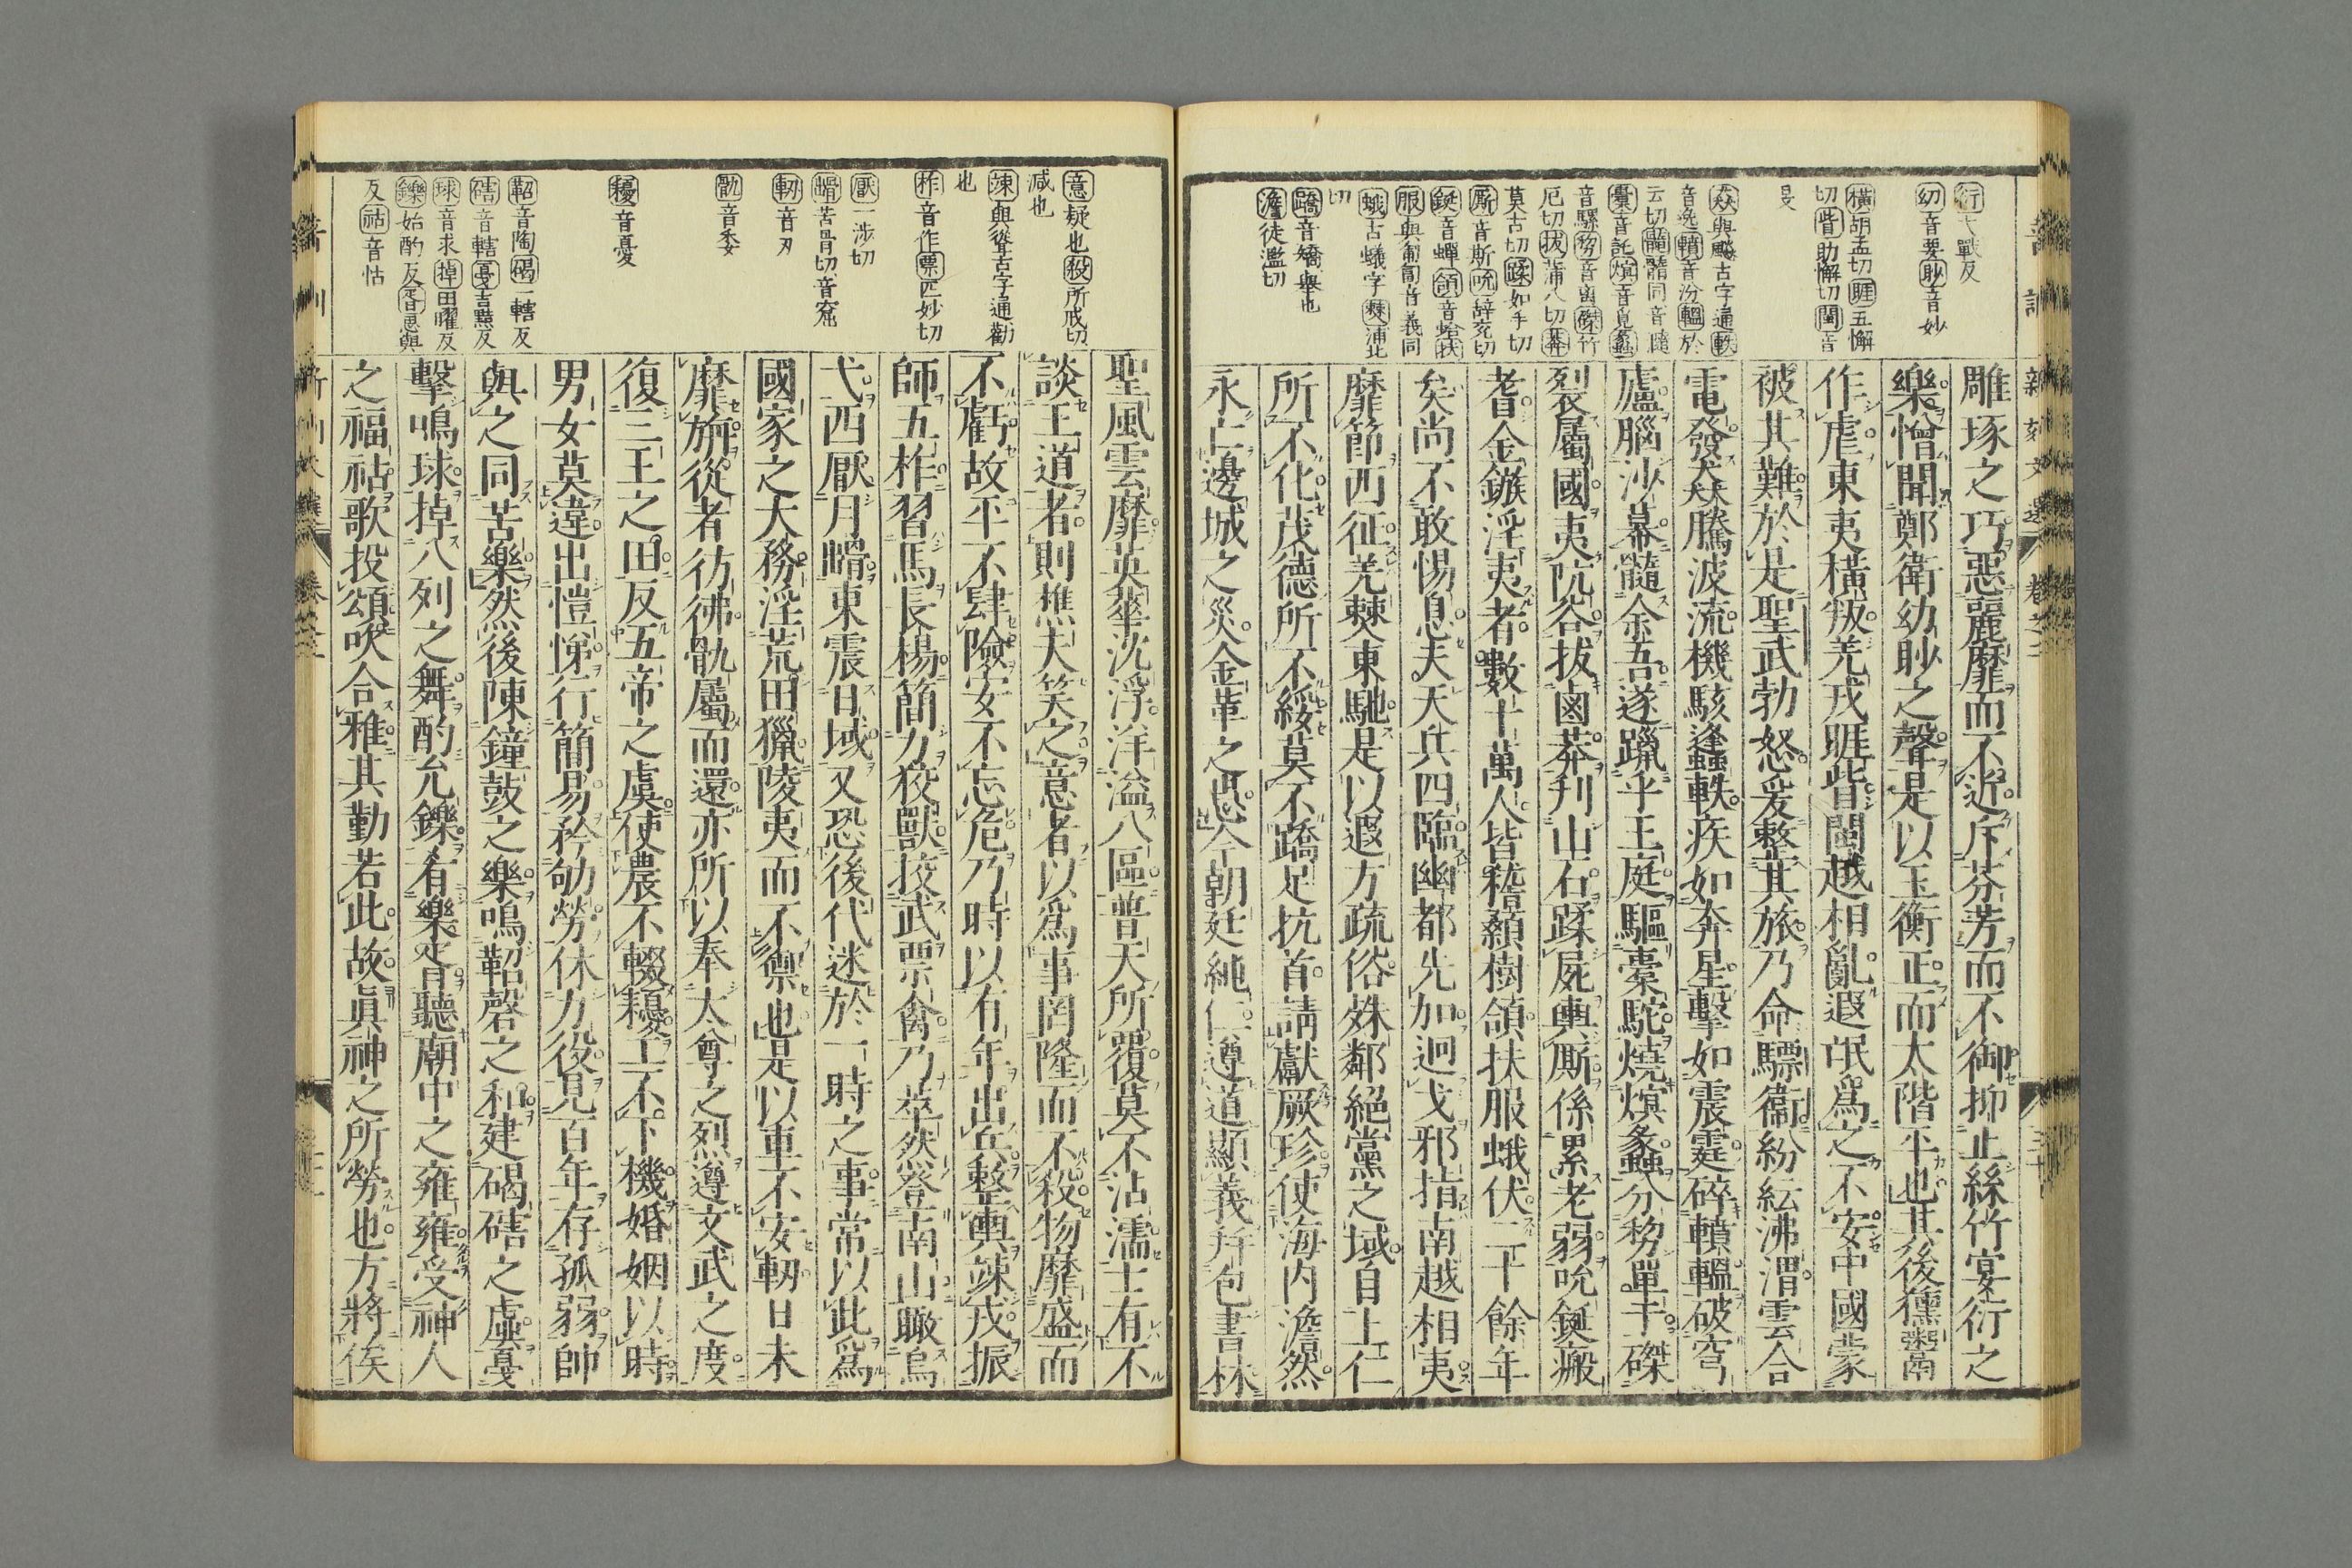 衍弋戰反
幼音要眇音妙
橫胡孟切睚五懈
切眥助懈切閩音
旻
猋與飈古字通軼
音逸轒音汾轀於
云切髓髓同音隨
橐音託熐音覓蠡
音騾㓨音离磔竹
厄切拔蒲八切莽
莫古切蹂如手切
厮音斯吮辭兖切
鋋音蟬頷音蛤扶
服與匍匐音義同
蛾古蟻字僰蒲北
切
蹻音矯舉也
澹徒濫切
雕琢之巧惡麗靡而不近斥芬芳而不御抑止絲竹宴衍之
樂憎聞鄭衛幼眇之聲是以玉衡正而太階平也其後獯鬻
作虐東夷橫叛羌戎睚眥閩越相亂遐氓爲之不安中國蒙
被其難於是聖武勃怒爰整其旅乃命驃衞紛紜沸渭雲合
電發猋騰波流機駭蠭軼疾如奔星擊如震霆碎轒轀破穹
廬腦沙幕髓余吾遂躐乎王庭驅橐駝燒熐蠡分㓨單于磔
裂屬國夷阬谷拔鹵莽刋山石蹂屍輿厮係累老弱吮鋋瘢
耆金鏃淫夷者數十萬人皆稽顙樹頷扶服蛾伏二十餘年
矣尚不敢惕息夫天兵四臨幽都先加迴戈邪指南越相夷
靡節西征羌僰東馳是以遐方疏俗殊鄰絕黨之域自上仁
所不化茂德所不綏莫不蹻足抗首請獻厥珍使海内澹然
永亡邊城之災金革之患今朝廷純仁遵道顯義幷包書林
新刻文選 卷之二 三十
意疑也殺所戒切
减也
竦與聳古字通勸
也
柞音作票匹妙切
厭一涉切
㟴苦骨切音窟
軔音刃
骫音委
耰音憂
鞀音陶碣一轄反
磍音轄戛古黠反
球音求掉田曜反
鑠始酌反胥思與
反祜音怙
聖風雲靡英華沈浮洋溢八區普天所覆莫不沾濡士有不
談王道者則樵夫笑之意者以爲事罔隆而不殺物靡盛而
不虧故平不肆險安不忘危乃時以有年出兵整輿竦戎振
師五柞習馬長楊簡力狡獸挍武票禽乃萃然登南山瞰烏
弋西厭月㟴東震日域又恐後代迷於一時之事常以此爲
國家之大務淫荒田獵陵夷而不禦也是以車不安軔日未
靡旃從者彷彿骫屬而還亦所以奉太尊之烈遵文武之度
復三王之田反五帝之虞使農不輟耰工不下機婚姻以時
男女莫違出愷悌行簡易矜劬勞休力役見百年存孤弱帥
與之同苦樂然後陳鐘鼓之樂鳴鞀磬之和建碣磍之虡戛
擊鳴球掉八列之舞酌允鑠肴樂胥聽廟中之雍雍受神人
之福祜歌投頌吹合雅其勤若此故眞神之所勞也方將俟